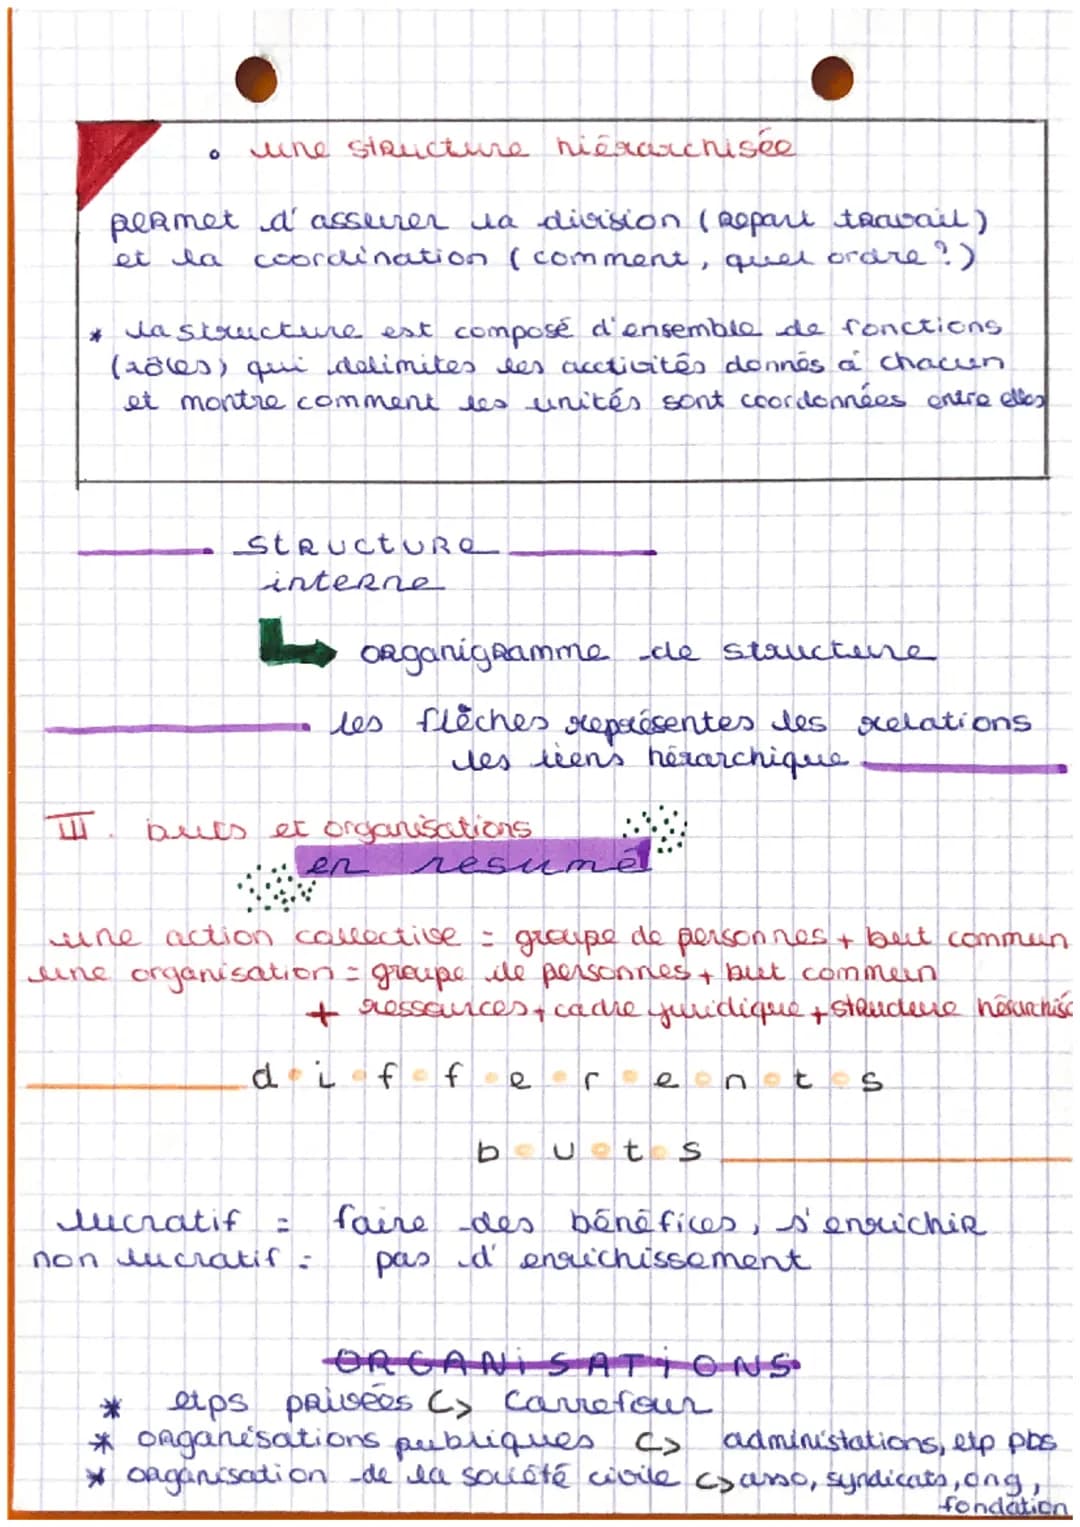 • une structure hiérarchisée
permet d'assurer la division (repart travail)
et la coordination (comment, quel ordre ?)
* la structure est composé d'ensemble de fonctions
(rôles) qui délimites les acctivités donnés à chacun
et montre comment les unités sont coordonnées entre elles
structure
interne
organigramme de structure
les flèches représentes les relations
les liens hérarchique
III. buts et organisations
en resumé
une action collective = groupe de personnes + but commun
une organisation = groupe de personnes + but commun
+ ressources + cadre juridique + structure hérarchisé
d i f f e r e n t s
b u t s
lucratif = faire des bénéfices, s'enrichir
non lucratif = pas d'enrichissement
ORGANiSATiONS
* etps privées Carrefour
* organisations publiques administations, etp pbs
* organisation de la société civile asso, syndicats, ong,
fondation